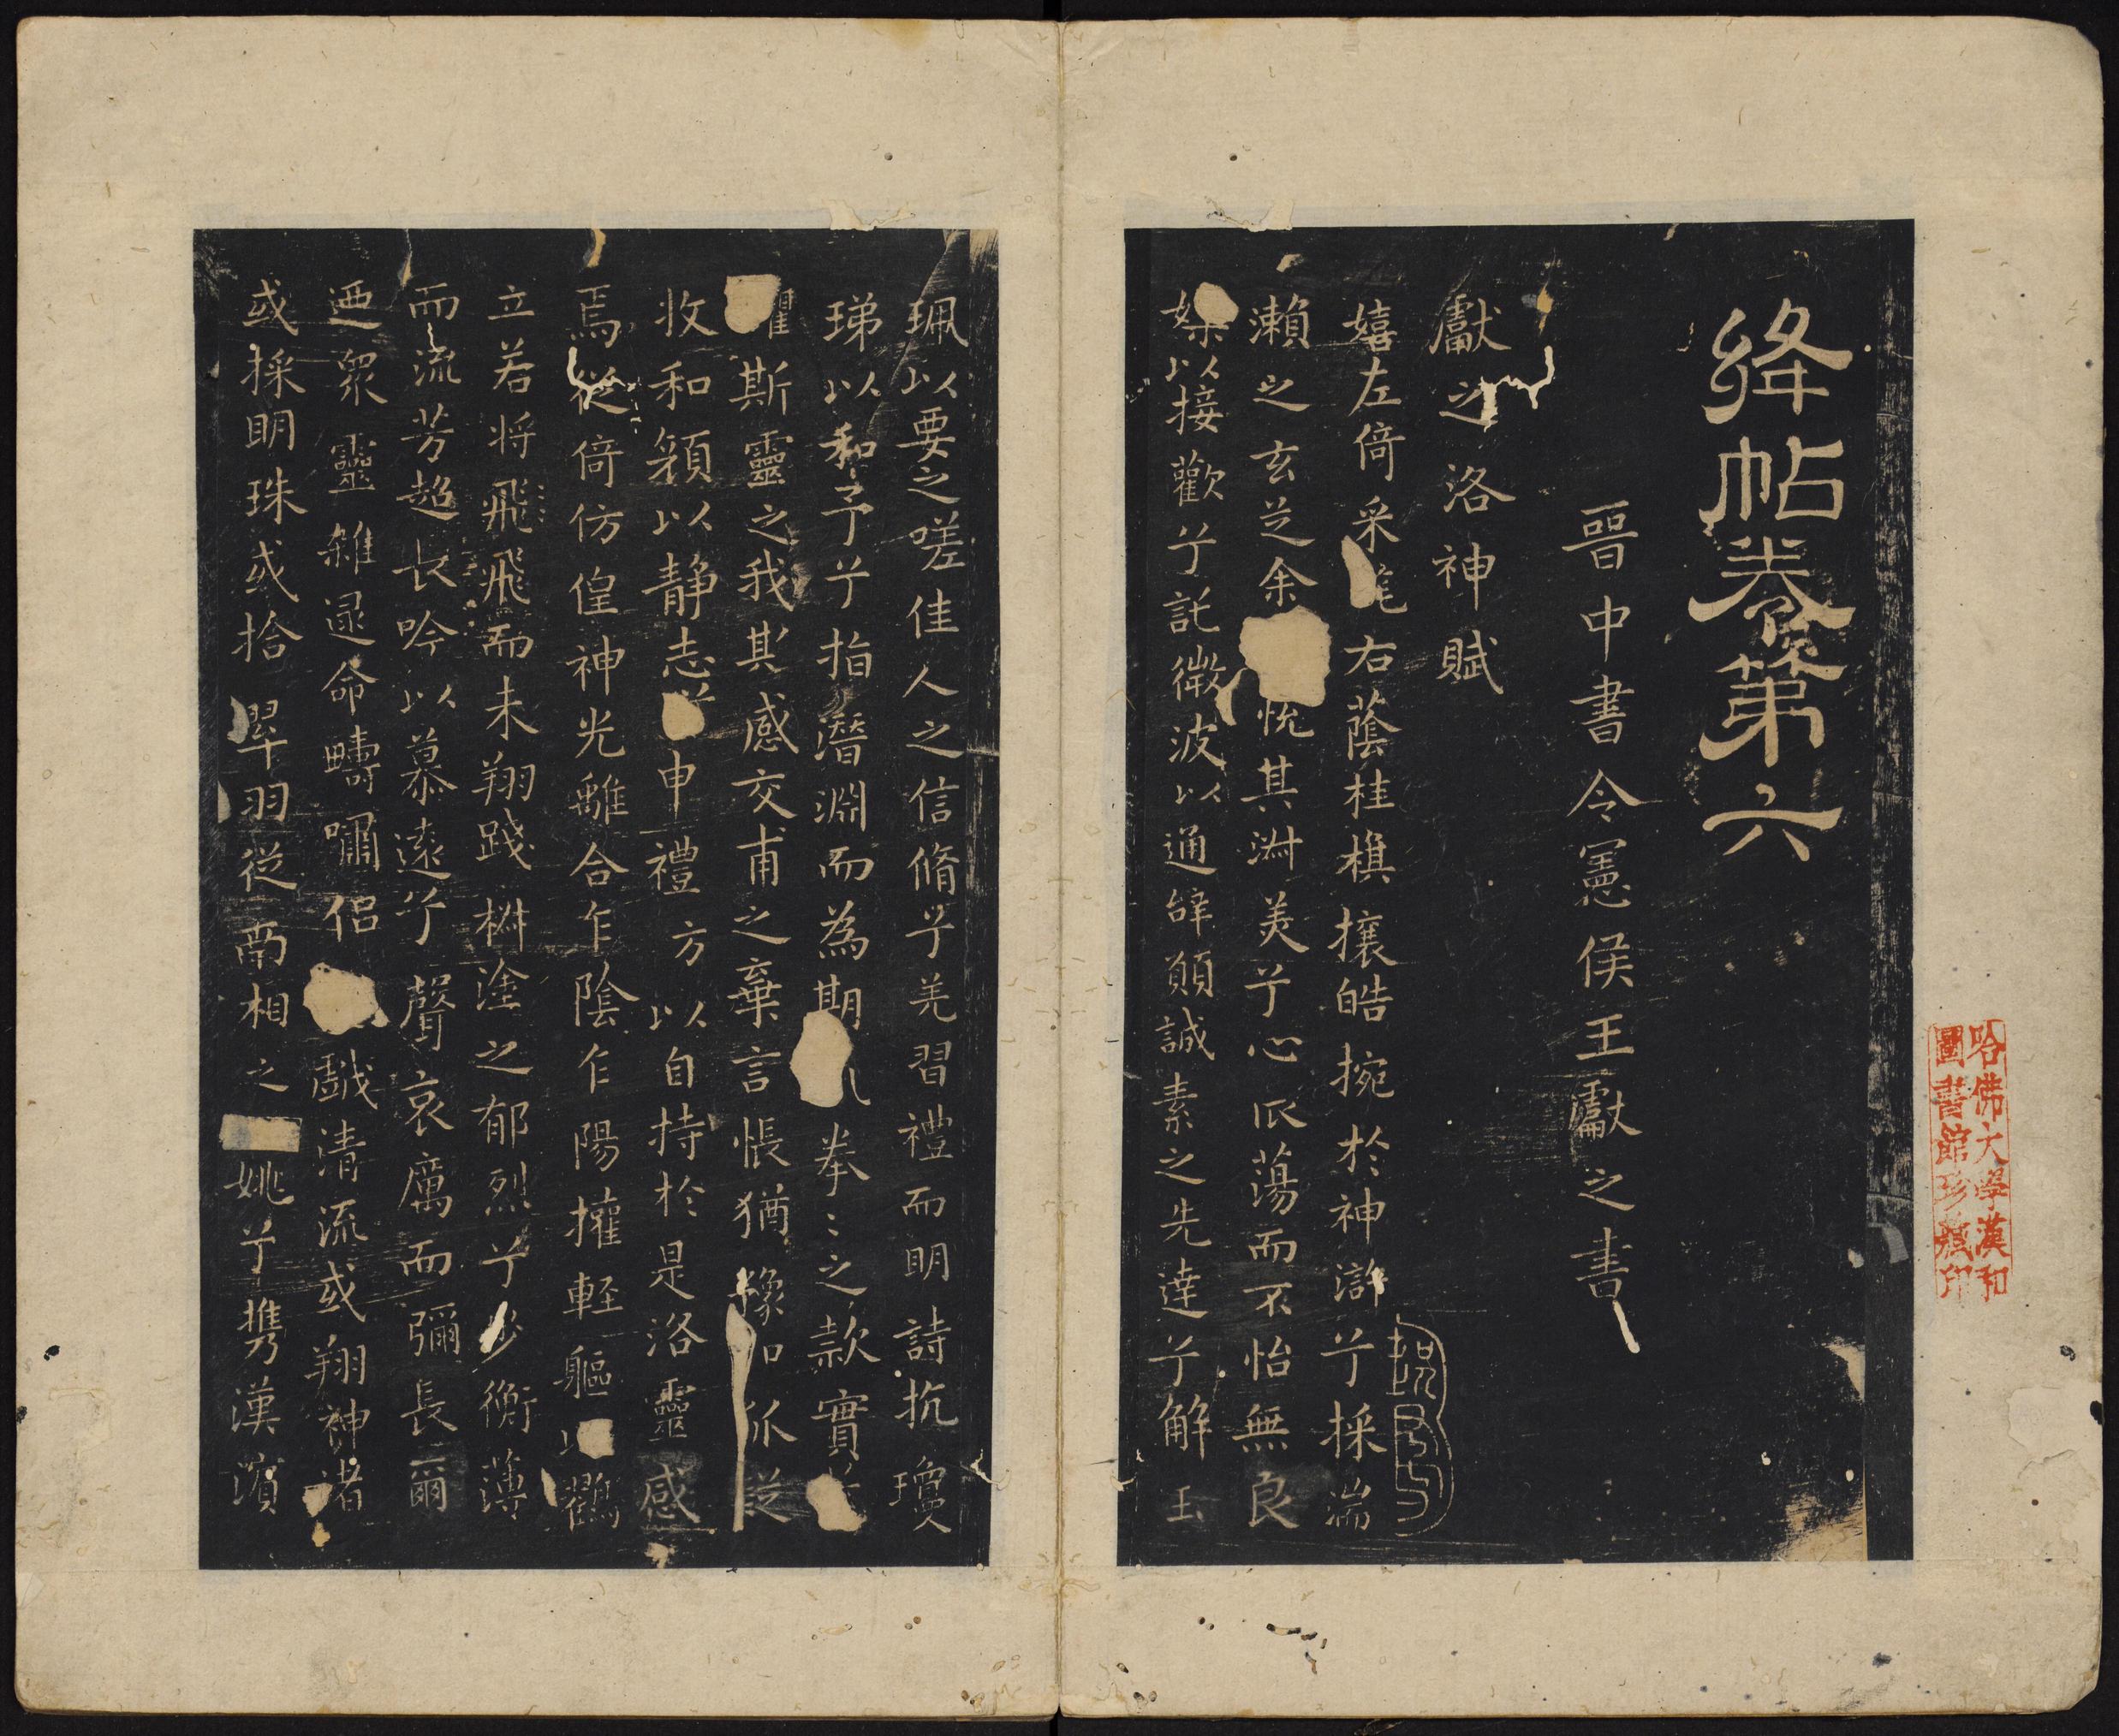 絳帖卷第六
晉中書令憲侯王獻之書
獻之洛神賦
嬉左倚采旄右蔭桂樹攘皓捥於神滸兮採湍
瀨之玄芝余悦其淋美兮心爪蕩而不怡無良
媒以接歡兮託微波以通辝願誠素之先達兮解玉
珮以要之嗟佳人之信脩兮羌習禮而明詩抗瓊
珶以和予兮指潛淵而為期拳〻之款實
懼斯靈之我其感交甫之棄言悵猶豫
收和顏以靜志兮申禮方以自持於是洛靈感
焉從倚仿偟神光離合乍陰乍陽擢輊軀以鸖
立若将飛飛而未翔踐椒塗之郁烈兮步衡薄
而流芳超長吟以慕遠兮聲哀厲而彌長爾
迺衆靈雜遝命疇嘯侶戲清流或翔神渚
或採明珠或拾翠羽從南相之姚兮携漢濱
哈佛大學漢和
圖書館珍藏印